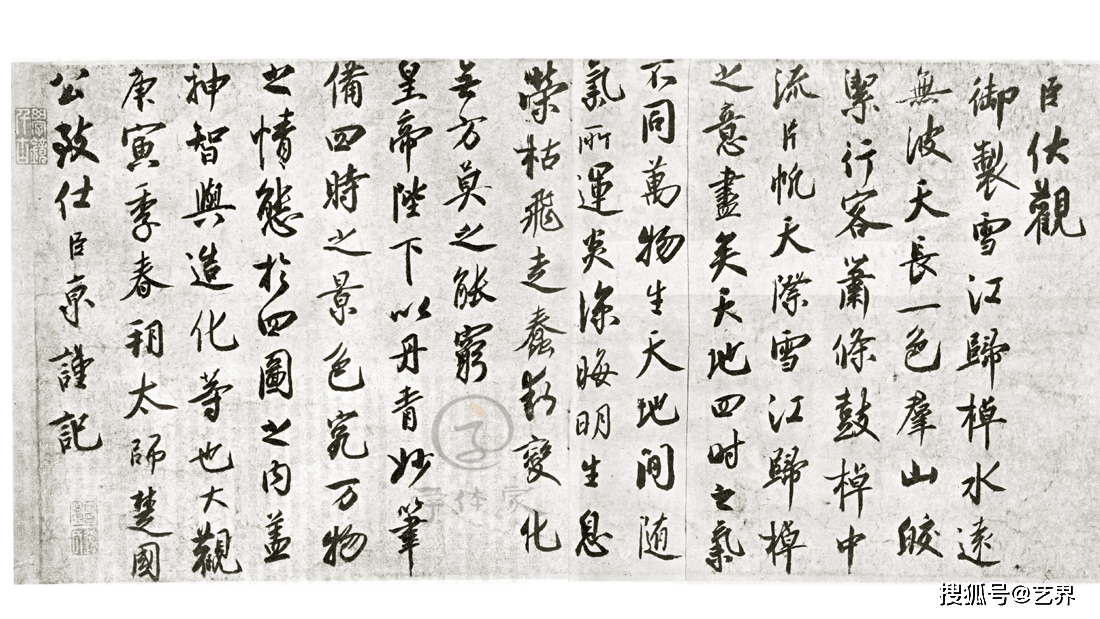 臣伏觀
御製雪江歸棹水遠
無波天長一色群山皎
潔行客蕭條鼓棹中
流片帆天際雪江歸棹
之意盡矣天地四时之氣
不同萬物生天地间随
氣所運炎涼晦明生息
榮枯飛走蠢動變化
無方莫之能窮
皇帝陛下以丹青妙筆
備四時之景色究万物
之情態於四圖之内盖
神智與造化等也大觀
庚寅季春朔太師楚國
公致仕臣京謹記
字体家
搜狐号@艺界